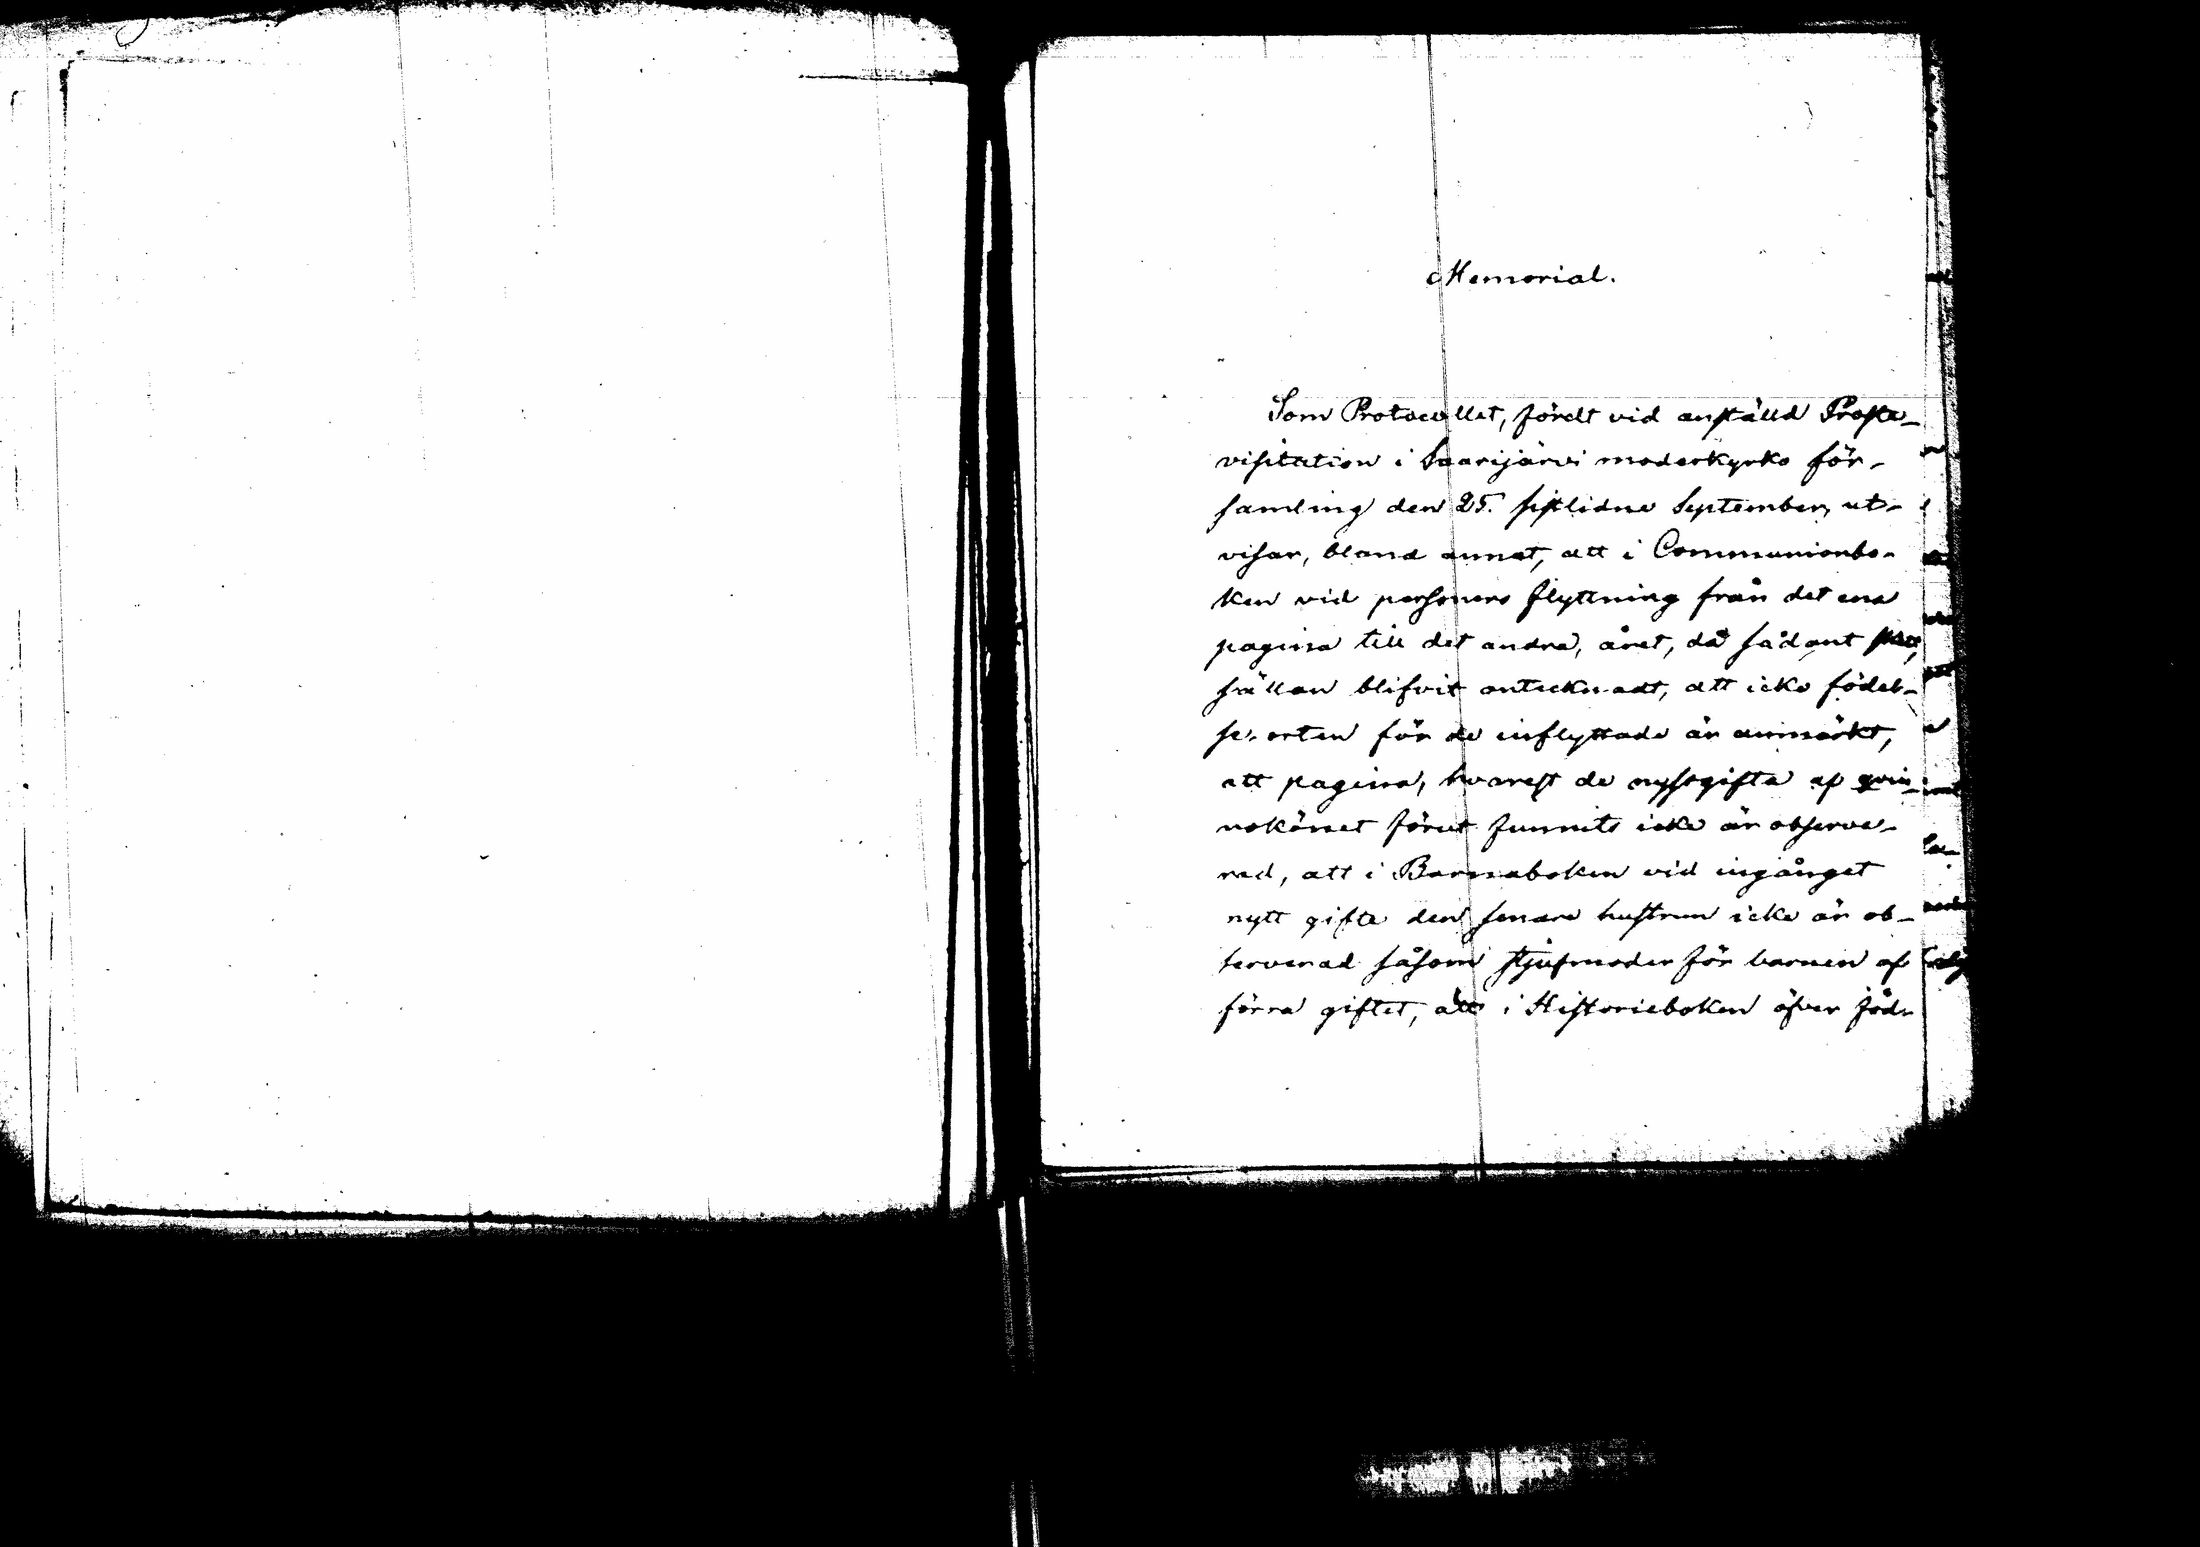 Memorial.
Som Protocollet, fördt vid anställd Proste-
visitation i Saarijärvi moderkyrko för-
samling den 25. sistlidne September, ut-
visar, bland annat, att i Communionbo-
ken vid personers flyttning från det ena
pagina till det andra, året, då sådant skett,
sällan blifvit antecknadt, att icke födel-
se-orten för de inflyttade är anmärkt,
att pagina, hvarest de nyssgifta af qvin-
nokönet förut funnits icke är observe-
rad, att i Barnaboken vid ingånget
nytt gifte den senare hustrun icke är ob-
serverad såsom stjufmoder för barnen af
förra giftet, att i Historieboken öfver föd-